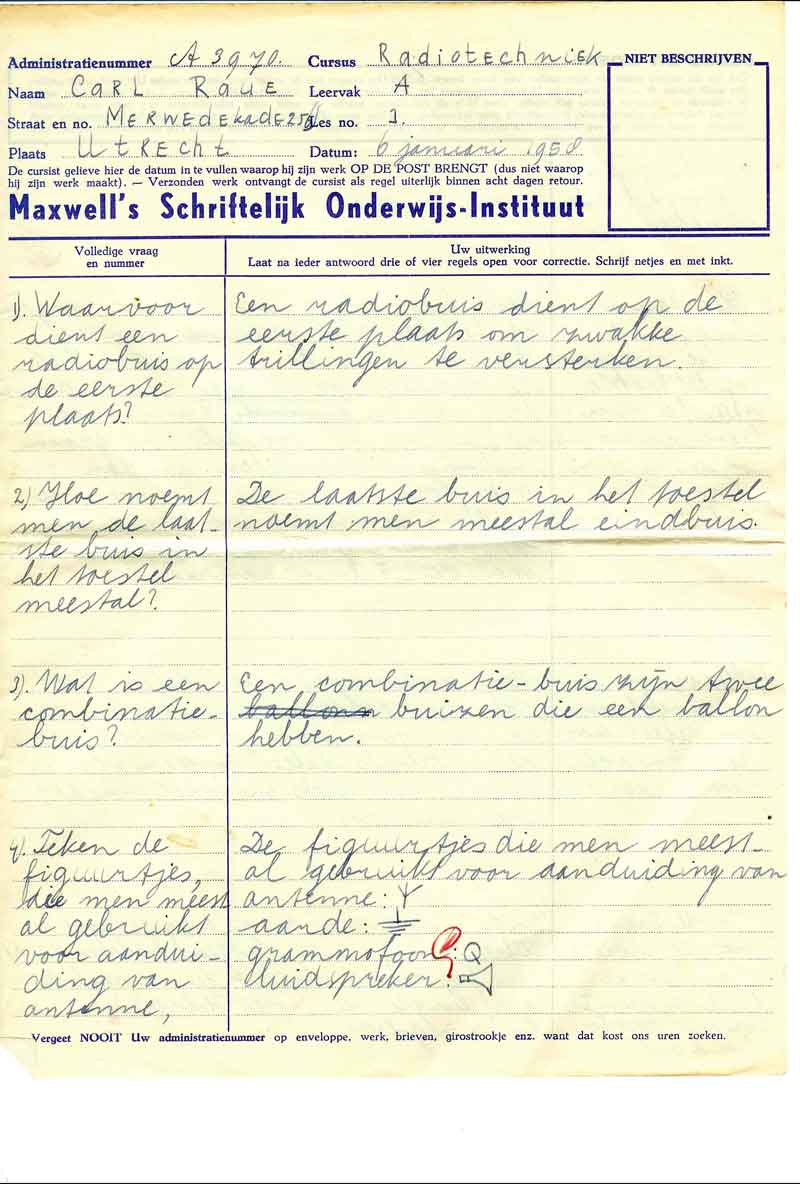 Administratienummer A 3970. Cursus Radiotechniek
NIET BESCHRIJVEN
Naam Carl Raue Leervak A
Straat en no. Merwedekade Les no. 1.
Plaats Utrecht Datum: 6 januari 1958
De cursist gelieve hier de datum in te vullen waarop hij zijn werk OP DE POST BRENGT (dus niet waarop
hij zijn werk maakt). — Verzonden werk ontvangt de cursist als regel uiterlijk binnen acht dagen retour.
Maxwell's Schriftelijk Onderwijs-Instituut
Volledige vraag
en nummer
Uw uitwerking
Laat na ieder antwoord drie of vier regels open voor correctie. Schrijf netjes en met inkt.
1). Waarvoor
dient een
radiobuis op
de eerste
plaats?
Een radiobuis dient op de
eerste plaats om zwakke
trillingen te versterken.
2) Hoe noemt
men de laat-
ste buis in
het toestel
meestal?
De laatste buis in het toestel
noemt men meestal eindbuis.
3). Wat is een
combinatie-
buis?
Een combinatie-buis zijn twee
buizen die een ballon
hebben.
4). Teken de
figuurtjes,
die men meest
al gebruikt
voor aandui-
ding van
antenne,
De figuurtjes die men meest-
al gebruikt voor aanduiding van
antenne:
aarde:
grammofoon:
luidspreker:
Vergeet NOOIT Uw administratienummer op enveloppe, werk, brieven, girostrookje enz. want dat kost ons uren zoeken.